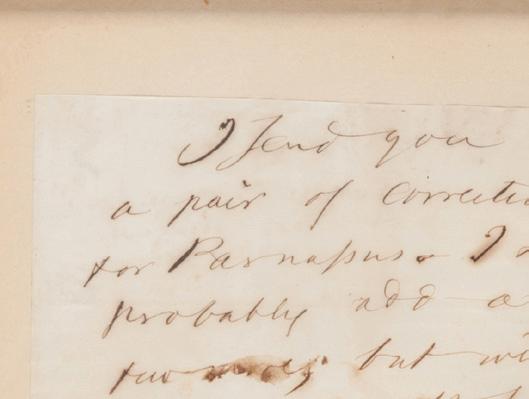 I send you
a pair of correctio
for Parnassus. I
probably add a
two but wi